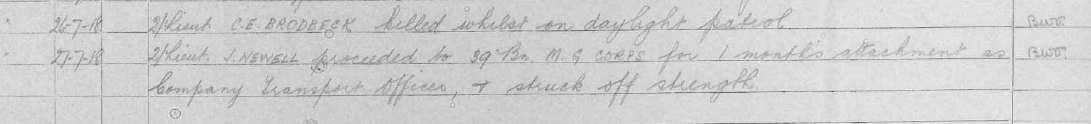 " 26-7-18 2/Lieut C.E. BRODBECK killed whilst on daylight patrol
" 27-7-18 2/Lieut. J. NEWELL proceeded to 39 Bn. M. G CORPS for 1 month's attachment as
Company Transport Officer, & struck off strength.